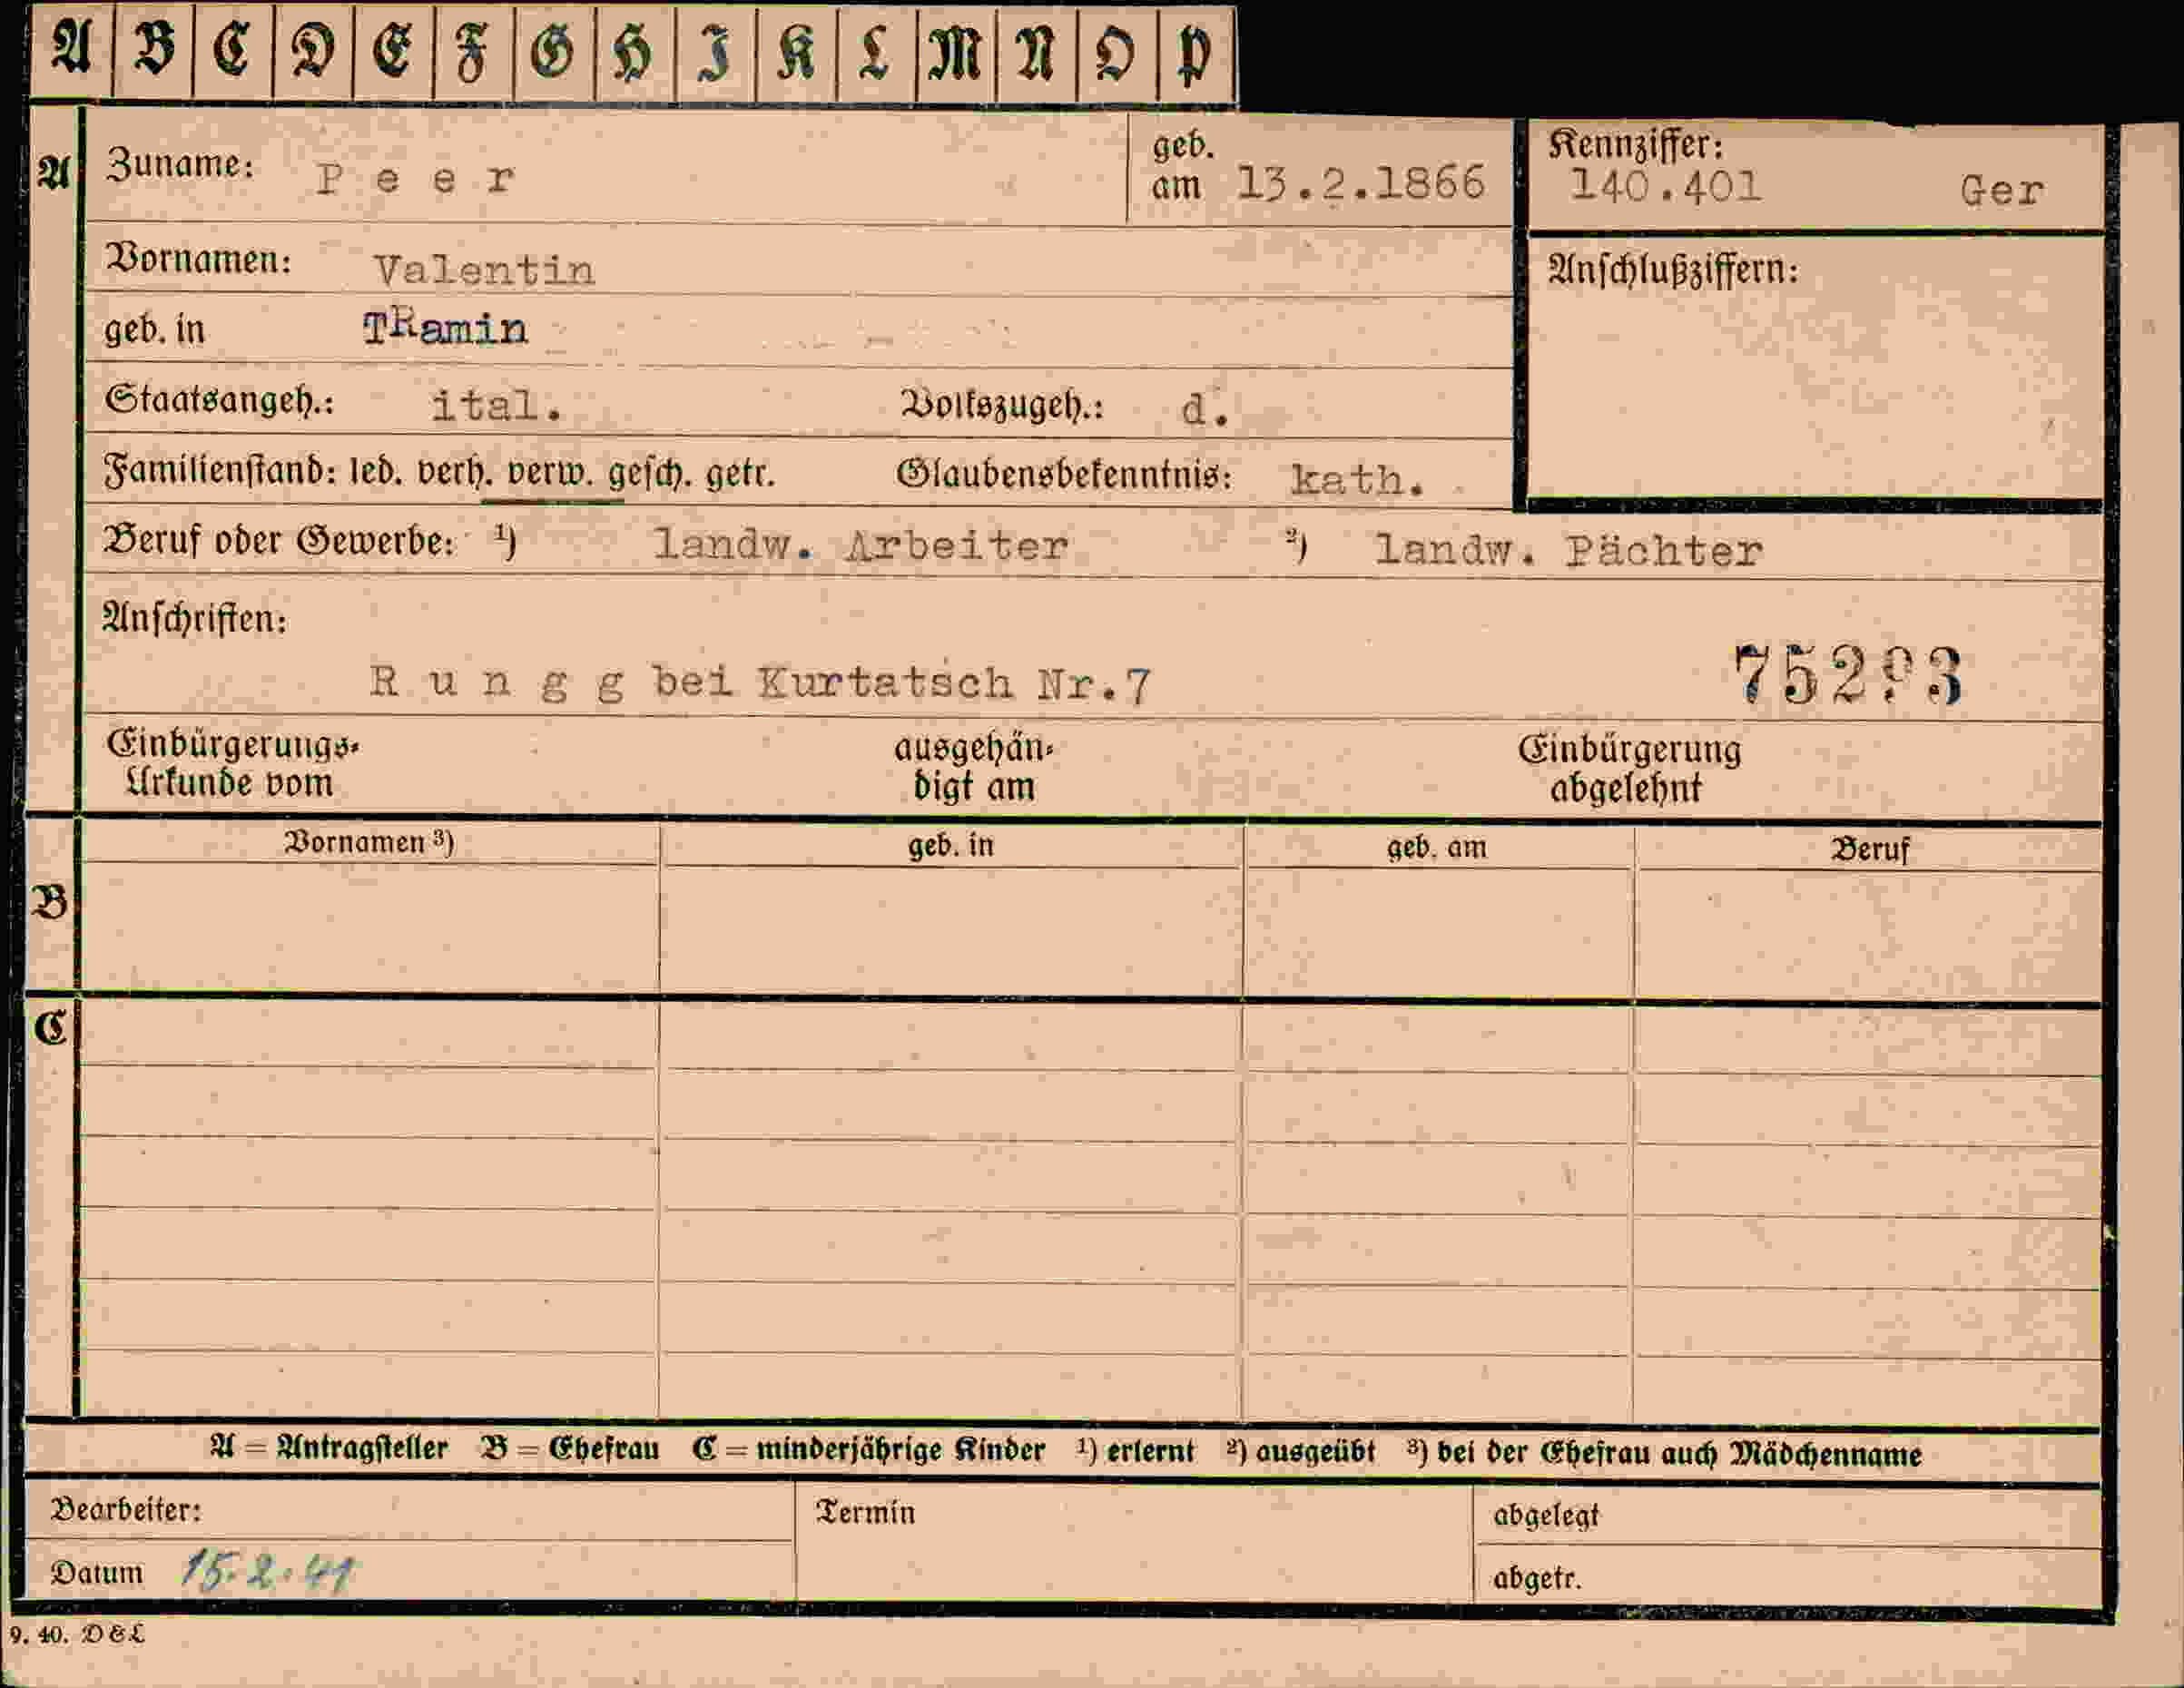 A B C D E F G H I K L M N O P
A Zuname: Peer geb. am 13.2.1866 Kennziffer: 140.401 Ger
Vornamen: Valentin Anschlußziffern:
geb. in TRamin
Staatsangeh.: ital. Volkszugeh.: d.
Familienstand: led. verh. verw. gesch. getr. Glaubensbekenntnis: kath.
Beruf oder Gewerbe: 1) landw. Arbeiter 2) landw. Pächter
Anschriften:
Rungg bei Kurtatsch Nr.7
Einbürgerungs- ausgehän- Einbürgerung
Urkunde vom digt am abgelehnt
Vornamen 3) geb. in geb. am Beruf
B
C
A = Antragsteller B = Ehefrau C = minderjährige Kinder 1) erlernt 2) ausgeübt 3) bei der Ehefrau auch Mädchenname
Bearbeiter: Termin abgelegt
Datum 15.2.41 abgetr.
9. 40. D&L